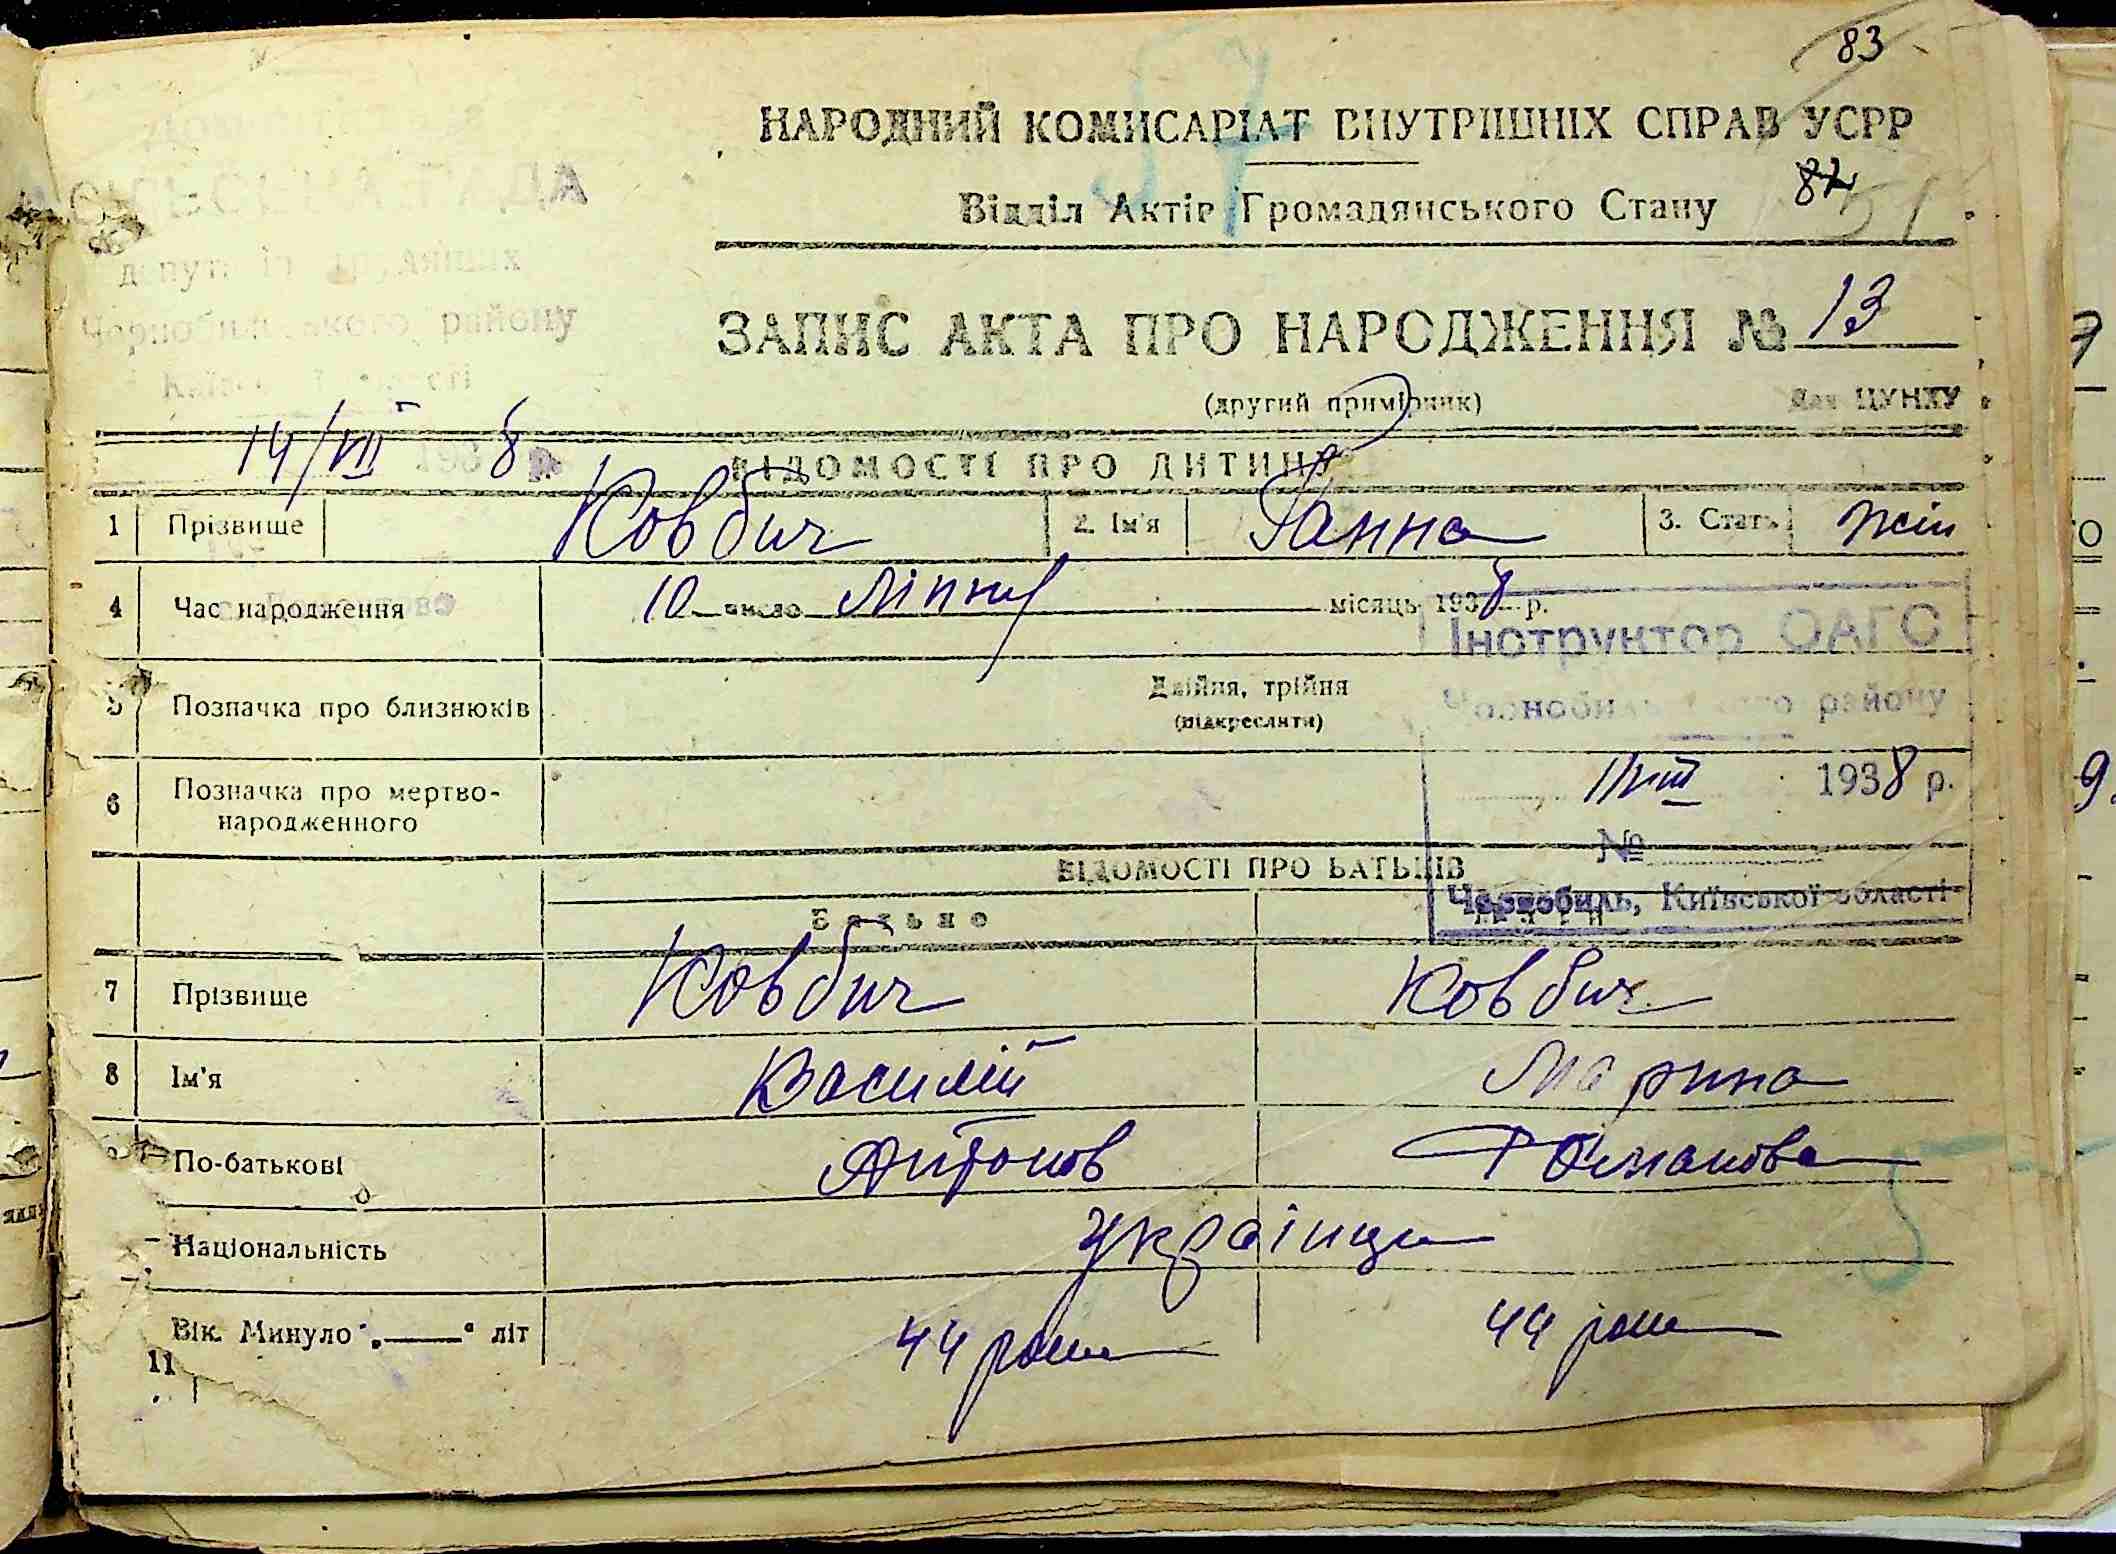 83
НАРОДНИЙ КОМИСАРІАТ ВНУТРІШНІХ СПРАВ УСРР
Відділ Актів Громадянського Стану
82
51
РАДА
депутатів трудящих
Чорнобильського району
Київської області
ЗАПИС АКТА ПРО НАРОДЖЕННЯ № 13
(другий примірник)
Для ЦУНХУ
14/VII 1938 р.
ВІДОМОСТІ ПРО ДИТИНУ
1 Прізвище Ковбич 2. Ім'я Ганна 3. Стать жін
4 Час народження 10 число Ліпня місяць 1938 р.
Інструктор ОАГС
5 Позначка про близнюків Двійня, трійня
(підкреслити)
Чорнобильського району
6 Позначка про мертво-
народженного
1938 р.
№
ВІДОМОСТІ ПРО БАТЬКІВ
Чернобиль, Київської області
Батько Мати
7 Прізвище Ковбич Ковбич
8 Ім'я Василій Марина
9 По-батькові Антонов
Національність Українци
Вік. Минуло „—“ літ 44 роки 44 роки
11